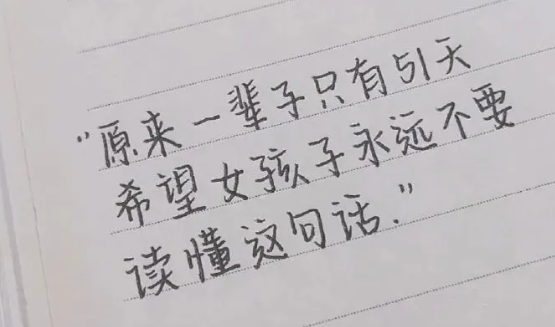 “原来一辈子只有51天
希望女孩子永远不要
读懂这句话.”